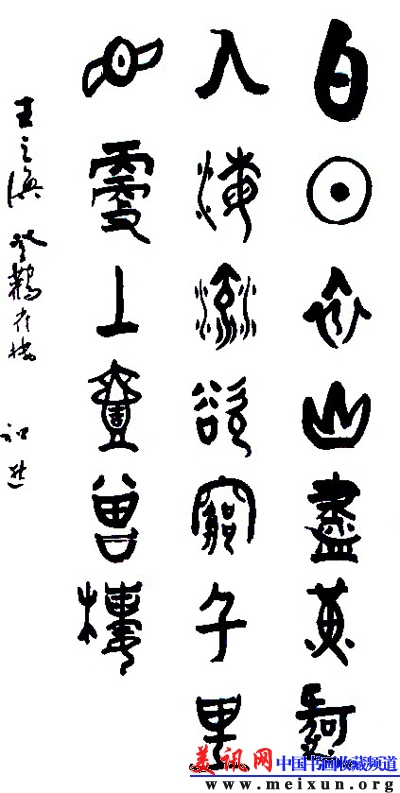 白日依山盡黃河
入海流欲窮千里
目更上壹曾樓
王之渙登鸛雀樓
美讯网 中国书画收藏频道
www.meixun.org